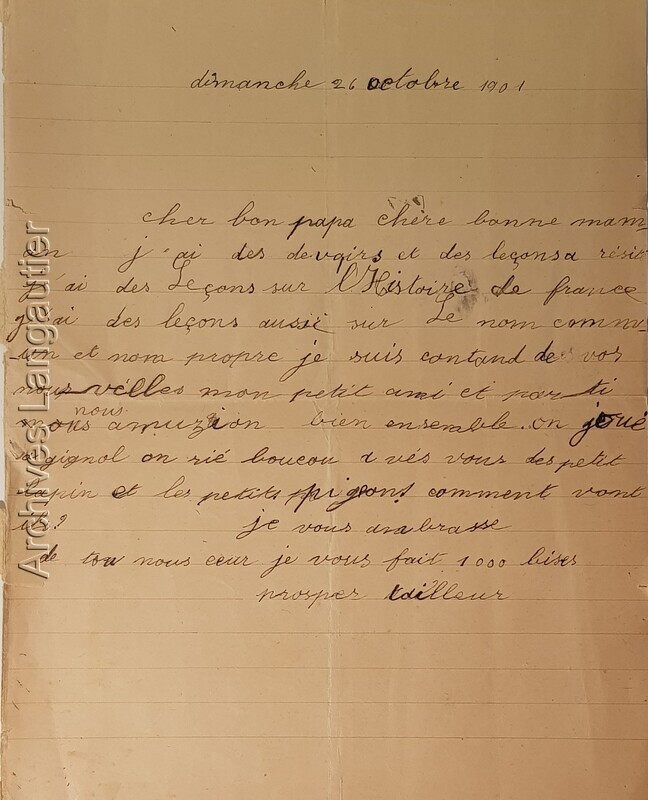 dimanche 26 octobre 1901
cher bon papa chère bonne mam-
an j'ai des devoirs et des leçons a résit
j'ai des Leçons sur l'Histoire de france
j'ai des leçons aussi sur Le nom commu-
un et nom propre je suis contand de vos
nous velles mon petit ami et par ti
nous
nous amuzion bien ensemble. on joué
gignol on rié boucou a vés vous des petit
lapin et les petits pigeons comment vont
ils?
je vous anbrasse
de tou nous ceur je vous fait 1000 bises
prosper tailleur
Archives Langautier